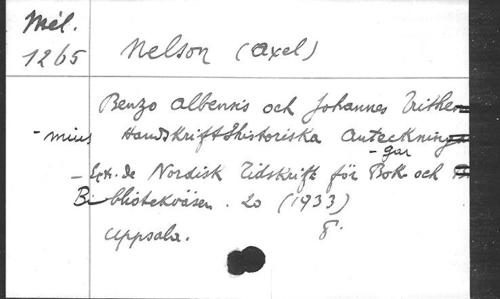 Mél.
1265
Nelson (Axel)
Benzo Albensis och Johannes Trithe
-mius Handskriftshistoriska Anteckning
-gar
- Extr. de Nordisk Tidskrift för Bok- och
Bibliotekväsen. 20 (1933)
Uppsala. 8°.